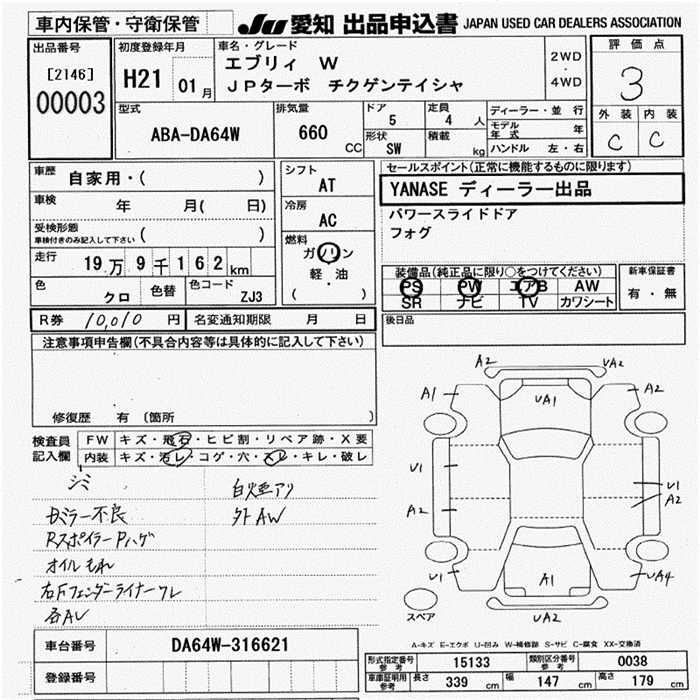 車内保管・守衛保管
JU 愛知 出品申込書 JAPAN USED CAR DEALERS ASSOCIATION
出品番号
[2146]
00003
初度登録年月
H21 01月
車名・グレード
エブリィ W
JPターボ チクゲンテイシャ
2WD
・
4WD
評価点
3
外装 内装
C C
型式
ABA-DA64W
排気量
660 CC
ドア
5
定員
4 人
形状
SW
積載
kg
ディーラー・並行
モデル年式 年
ハンドル 左・右
車歴
自家用・( )
車検
年 月( 日)
受検形態
車検付きのみ記入して下さい ( )
走行
19万9千162km
色
クロ
色替
色コード
ZJ3
シフト
AT
冷房
AC
燃料
ガソリン
軽・油
( )
セールスポイント(正常に機能するものに限ります)
YANASE ディーラー出品
パワースライドドア
フォグ
装備品(純正品に限り○をつけてください)
PS PW エアB AW
SR ナビ TV カワシート
新車保証書
有・無
R券 10,010 円 名変通知期限 月 日
後日品
注意事項申告欄(不具合内容等は具体的に記入して下さい)
修復歴 有 〔箇所 〕
検査員記入欄
FW キズ・飛石・ヒビ割・リペア跡・X要
内装 キズ・汚レ・コゲ・穴・スレ・キレ・破レ
シミ
白煙アリ
外AW
Rスポイラー Pハゲ
オイルもれ
右Fフェンダーライナーワレ
各AU
A2 UA2
A1 UA1 A2
U1 U1
A2 A2
U1 A1 UA4
スペア UA2
A-キズ E-エクボ U-凹み W-補修跡 S-サビ C-腐食 XX-交換済
車台番号 DA64W-316621
登録番号
形式指定番号 参考 15133 類別区分番号 参考 0038
車庫証明用 参考 長さ 339 cm 幅 147 cm 高さ 179 cm